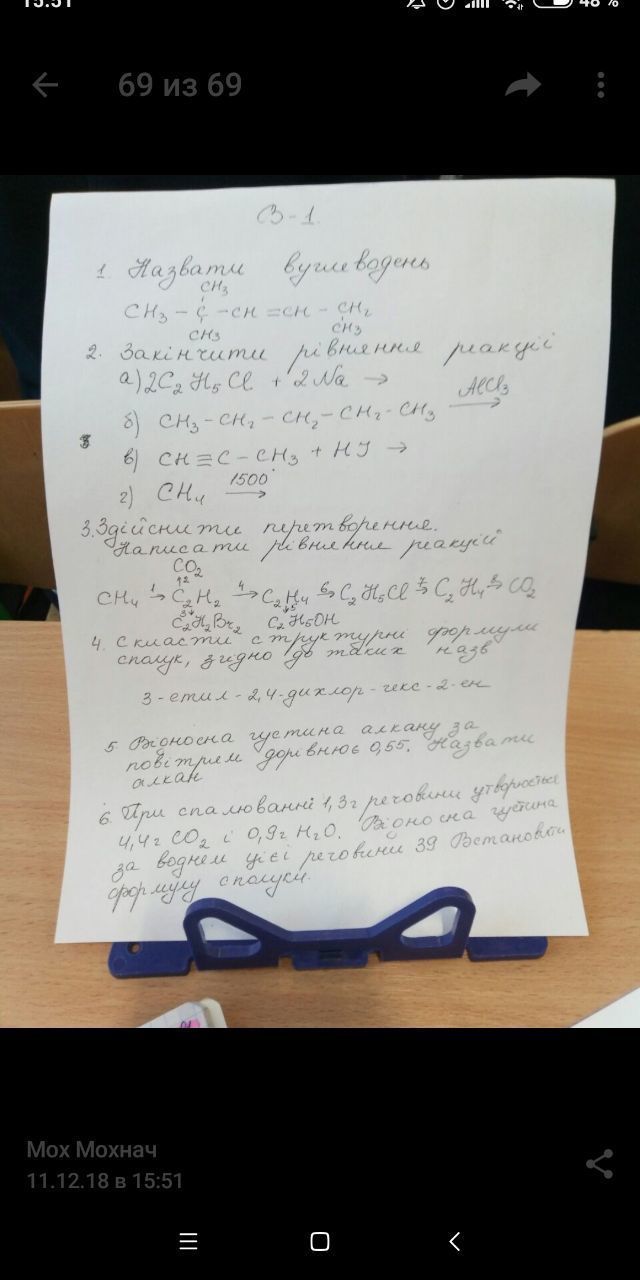 15:51
48 %
69 из 69
В-1.
1. Назвати вуглеводень
CH₃
CH₃ - C - CH = CH - CH₂
CH₃ CH₃
2. Закінчити рівняння реакції
а) 2C₂H₅Cl + 2Na →
б) CH₃ - CH₂ - CH₂ - CH₂ - CH₃ AlCl₃ →
в) CH ≡ C - CH₃ + HJ →
г) CH₄ 1500° →
3. Здійснити перетворення.
Написати рівняння реакцій
CO₂
↑2
CH₄ 1→ C₂H₂ 4→ C₂H₄ 6→ C₂H₅Cl 7→ C₂H₄ 8→ CO₂
3↓ ↓5
C₂H₂Br₂ C₂H₅OH
4. Скласти структурні формули
сполук, згідно до таких назв
3-етил-2,4-дихлор-гекс-2-ен
5 Відносна густина алкану за
повітрям дорівнює 0,55. Назвати
алкан
6. При спалюванні 1,3г речовини утворюється
4,4г CO₂ і 0,9г H₂O. Відносна густина
за воднем цієї речовини 39 Встановити
формулу сполуки.
Мох Мохнач
11.12.18 в 15:51